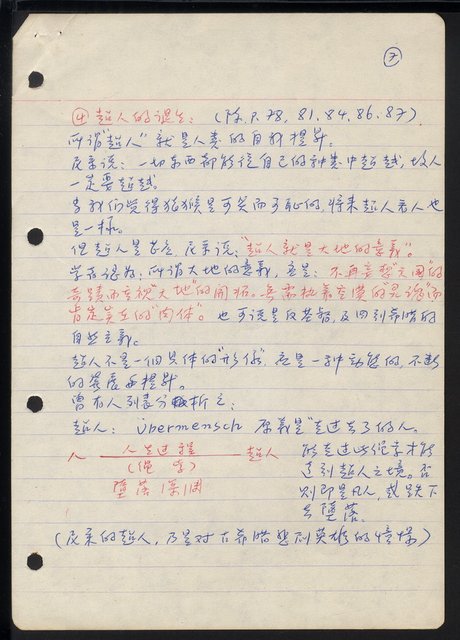 ⑦
④ 超人的誕生：(陈.P.78, 81.84.86.87).
所谓"超人"就是人类的自我提昇。
尼采说：一切东西都能從自己的种类中超越，故人
一定要超越。
当我们觉得猿猴是可笑而可耻的，将来超人看人也
是一樣。
但超人是甚么，尼采说："超人就是大地的意義"。
学者认为：所谓大地的意義，应是：不再寄望"天国"的
奇蹟而重視"大地"的開拓。無需执着空漠的"灵魂"而
肯定实在的"肉体"。也可说是反基督，及回到希腊的
自然主義。
超人不是一個具体的"形体"，应是一种动態的，不断
的發展与提昇。
曾有人列表分析之：
超人：übermensch 原義是"走过去了的人。
人 人生过程 超人
(绳索)
墮落深淵
能走过此绳子才能
达到超人之境。否
则即是凡人，或跌下
去墮落.
(尼采的超人，乃是对古希腊悲剧英雄的憧憬)